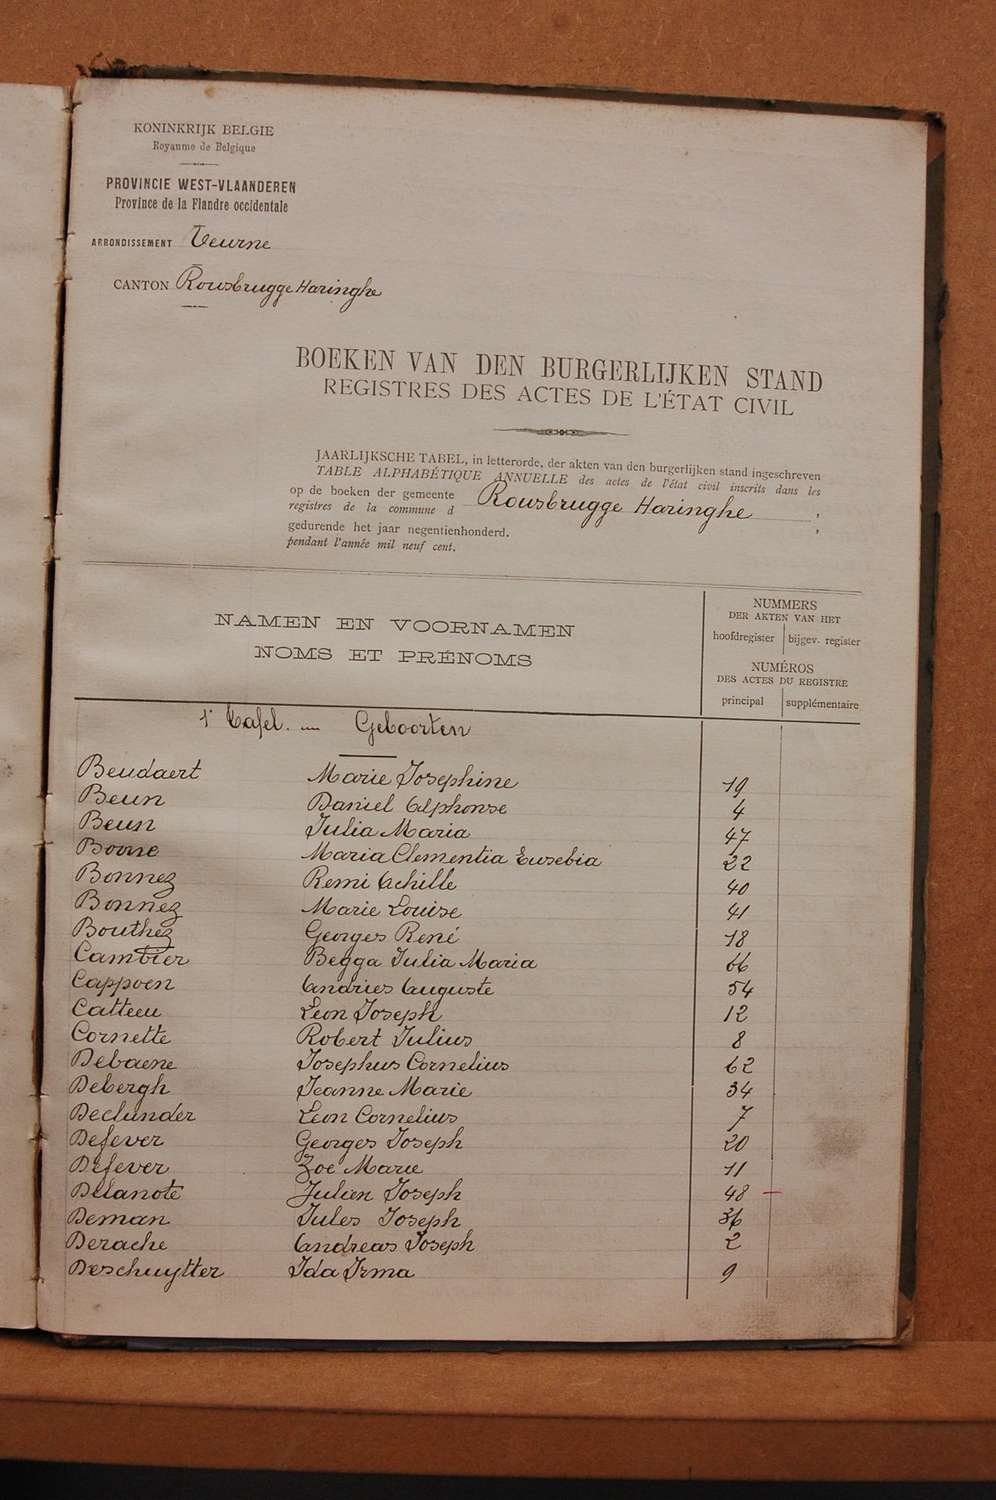 KONINKRIJK BELGIE
Royaume de Belgique
PROVINCIE WEST-VLAANDEREN
Province de la Flandre occidentale
ARRONDISSEMENT Veurne
CANTON Rousbrugge Haringhe
BOEKEN VAN DEN BURGERLIJKEN STAND
REGISTRES DES ACTES DE L'ÉTAT CIVIL
JAARLIJKSCHE TABEL, in letterorde, der akten van den burgerlijken stand ingeschreven
TABLE ALPHABÉTIQUE ANNUELLE des actes de l'état civil inscrits dans les
op de boeken der gemeente Rousbrugge Haringhe ,
registres de la commune d ,
gedurende het jaar negentienhonderd.
pendant l'année mil neuf cent.
NAMEN EN VOORNAMEN
NOMS ET PRÉNOMS
NUMMERS
DER AKTEN VAN HET
hoofdregister bijgev. register
NUMÉROS
DES ACTES DU REGISTRE
principal supplémentaire
1e Tafel. — Geboorten
Beudaert Marie Josephine 19
Beun Daniel Alphonse 4
Beun Julia Maria 47
Boone Maria Clementia Eusebia 22
Bonnez Remi Achille 40
Bonnez Marie Louise 41
Bouthez Georges René 18
Cambier Begga Julia Maria 66
Cappoen Andries Auguste 54
Catteeu Léon Joseph 12
Cornette Robert Julius 8
Debaene Josephus Cornelius 62
Debergh Jeanne Marie 34
Declunder Léon Cornelius 7
Defever Georges Joseph 20
Defever Zoé Marie 11
Delanote Julien Joseph 48
Deman Jules Joseph 36
Derache Andreas Joseph 2
Deschuytter Ida Irma 9